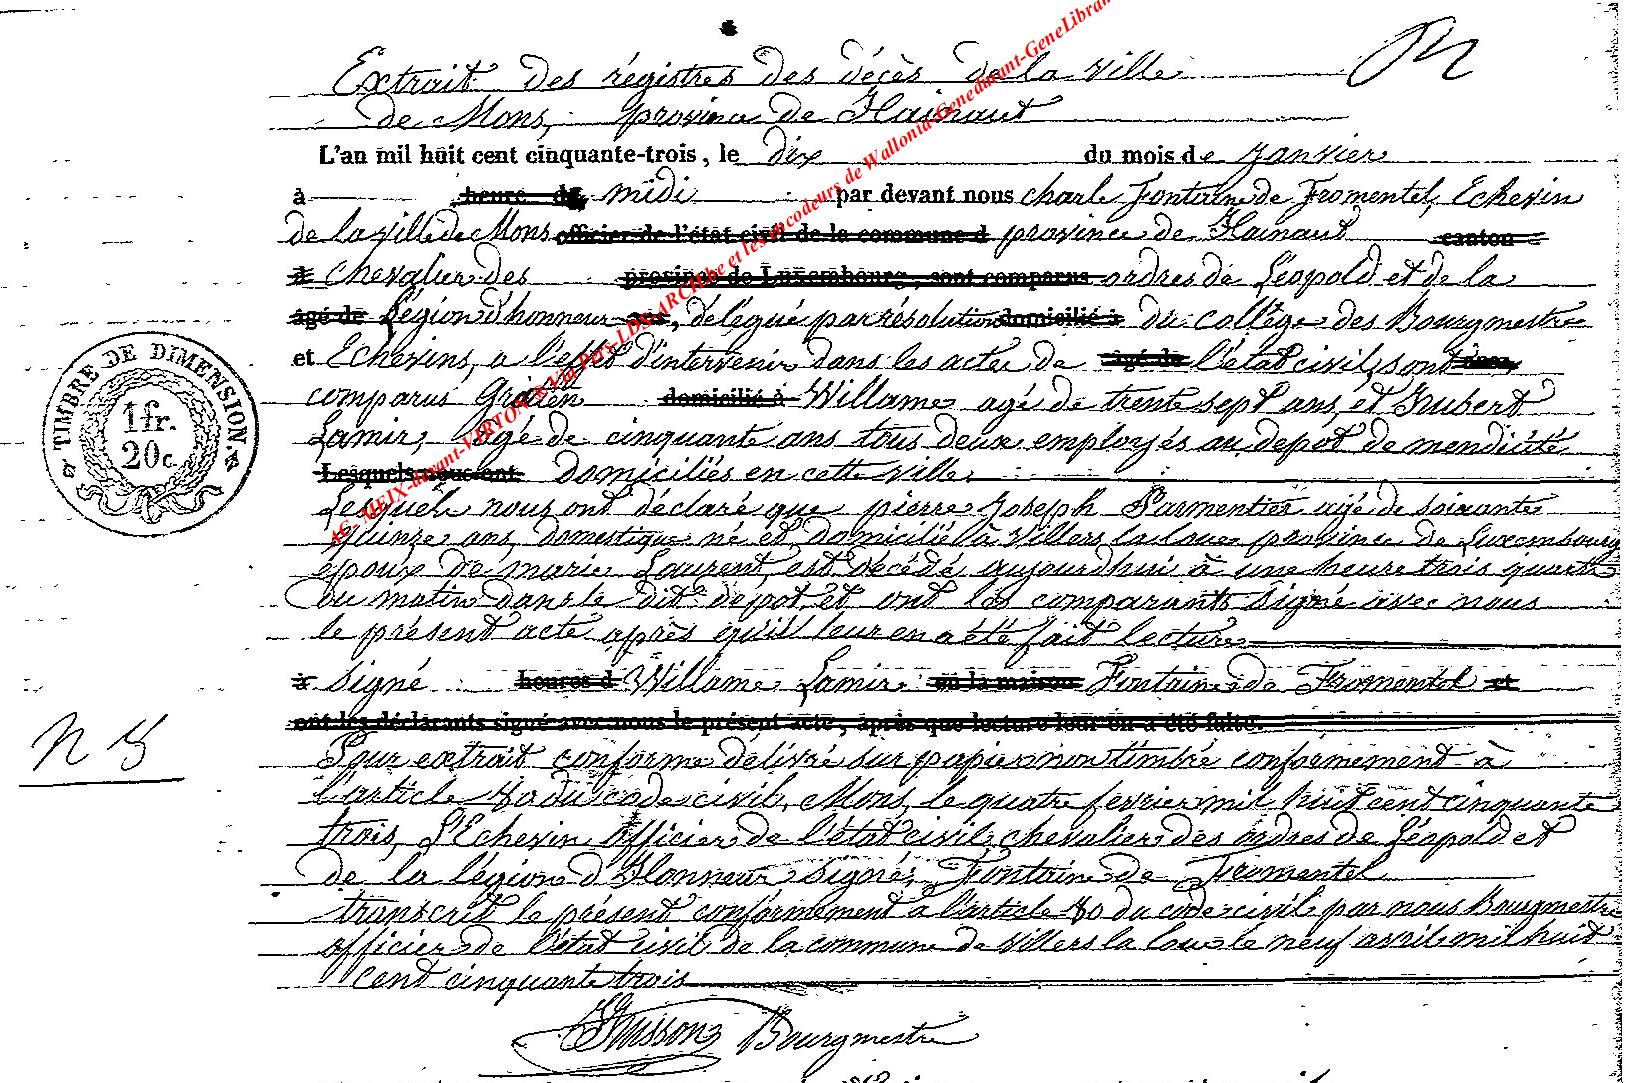 Extrait des régistres des décès de la ville
de Mons, province de Hainaut
L'an mil huit cent cinquante-trois, le dix du mois de Janvier
à heure de midi par devant nous charle Fontaine de Fromentel, Echevin
de la ville de Mons officier de l'état civil de la commune d province de Hainaut canton
d chevalier des province de Luxembourg, sont comparus ordres de Léopold et de la
âgé de Légion d'honneur ans, délégué par résolution domicilié à du collège des Bourgmestre
et Echevins, a l'effet d'intervenir dans les acte de âgé de l'état civil, sont
comparus Gratien domicilié à Willame agé de trente sept ans, et Hubert
Lamir, agé de cinquante ans tous deux employés au depot de mendicité
Lesquels nous ont domiciliés en cette ville.
Lesquels nous ont déclaré que pierre Joseph Parmentier agé de soixante
quinze ans, domestique né et domicilié à Villers la loue province de Luxembourg
époux de marie Laurent, est décédé aujourdhui à une heure trois quarts
du matin dans le dit depot, et ont les comparants signé avec nous
le présent acte après qu'il leur en a été fait lecture
à signé heures d Willame Lamir en la maison Fontaine de Fromentel et
ont les déclarants signé avec nous le présent acte, après que lecture leur en a été faite.
Pour extrait conforme delivré sur papier non timbré conformement à
l'article 80 du code civil, Mons, le quatre fevrier mil huit cent cinquante
trois, L'Echevin officier de l'état civil chevalier des ordres de Léopold et
de la légion d'Honneur signé, Fontaine de Fromentel
transcrit le présent conformement a l'article 80 du code civil par nous Bourgmestre
officier de l'état civil de la commune de Villers la loue le neuf avril mil huit
cent cinquante trois
Bourgmestre
TIMBRE DE DIMENSION.
1 fr.
20 c.
N 5
AG-MEIX-devant-VIRTON & Via Pers-LDS-ARCH.be et les encodeurs de Wallonia-Genedinant-GeneLibran